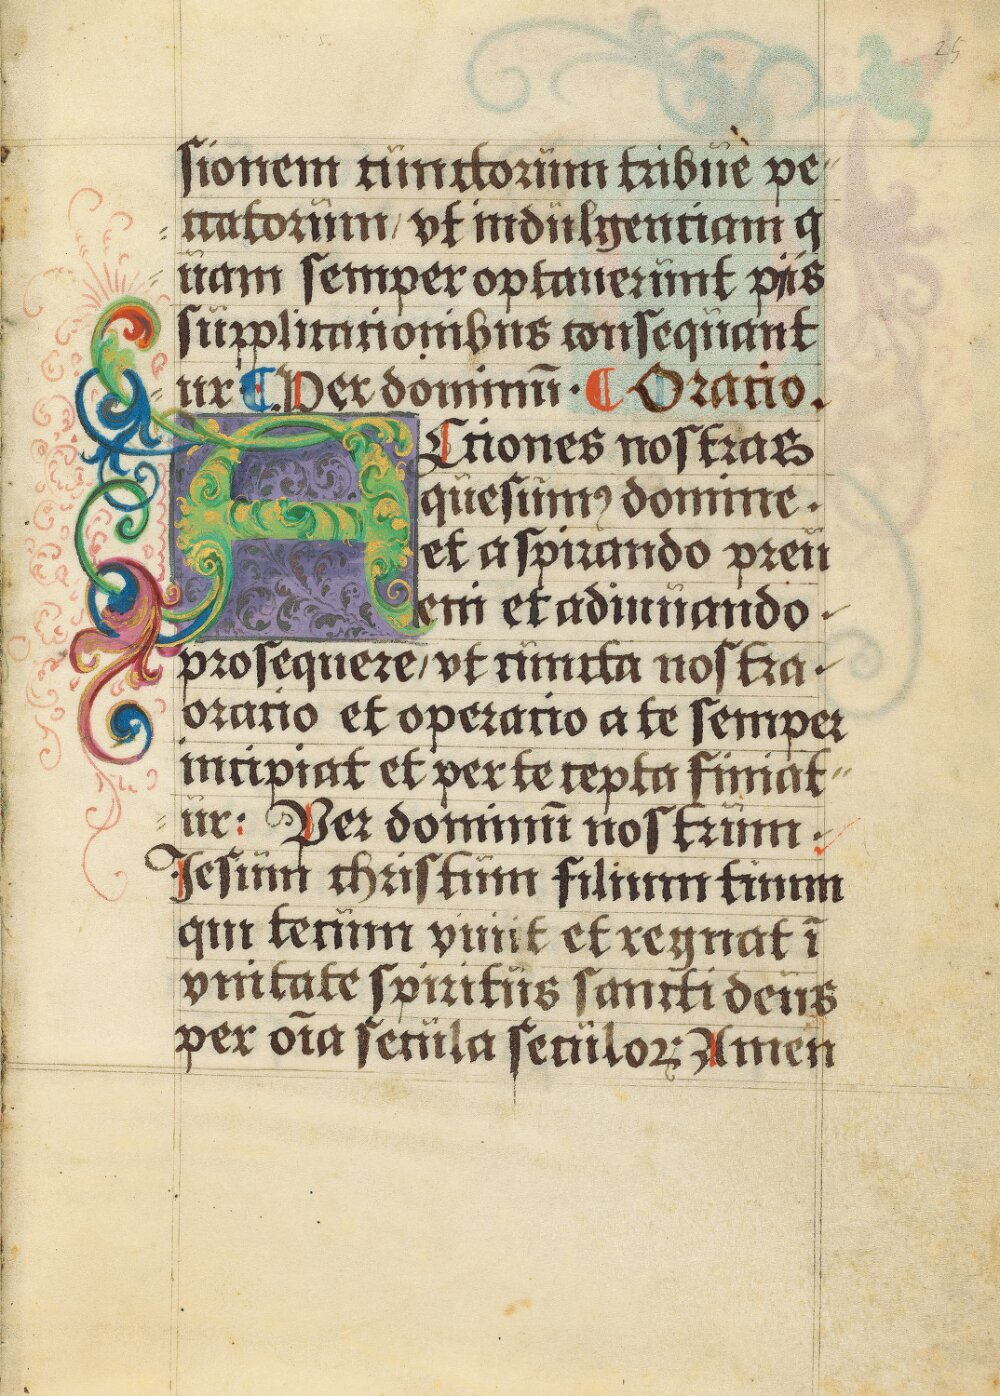 25
sionem cunctorum tribue pe〃
ccatorum/ vt indulgentiam q
uam semper optauerunt piis
supplicationibus consequant
ur ¶ Per dominū · ¶ Oracio.
ACtiones nostras
quesumꝰ domine ·
et aspirando preu
eni et adiuuando ·
prosequere/ vt cuncta nostra ·
oracio et operacio a te semper
incipiat et per te cepta finiat〃
ur: Per dominū nostrum ·
Jesum christum filium tuum
qui tecum viuit et regnat ī
vnitate spiritus sancti deus
per oīa secula seculoꝝ Amen